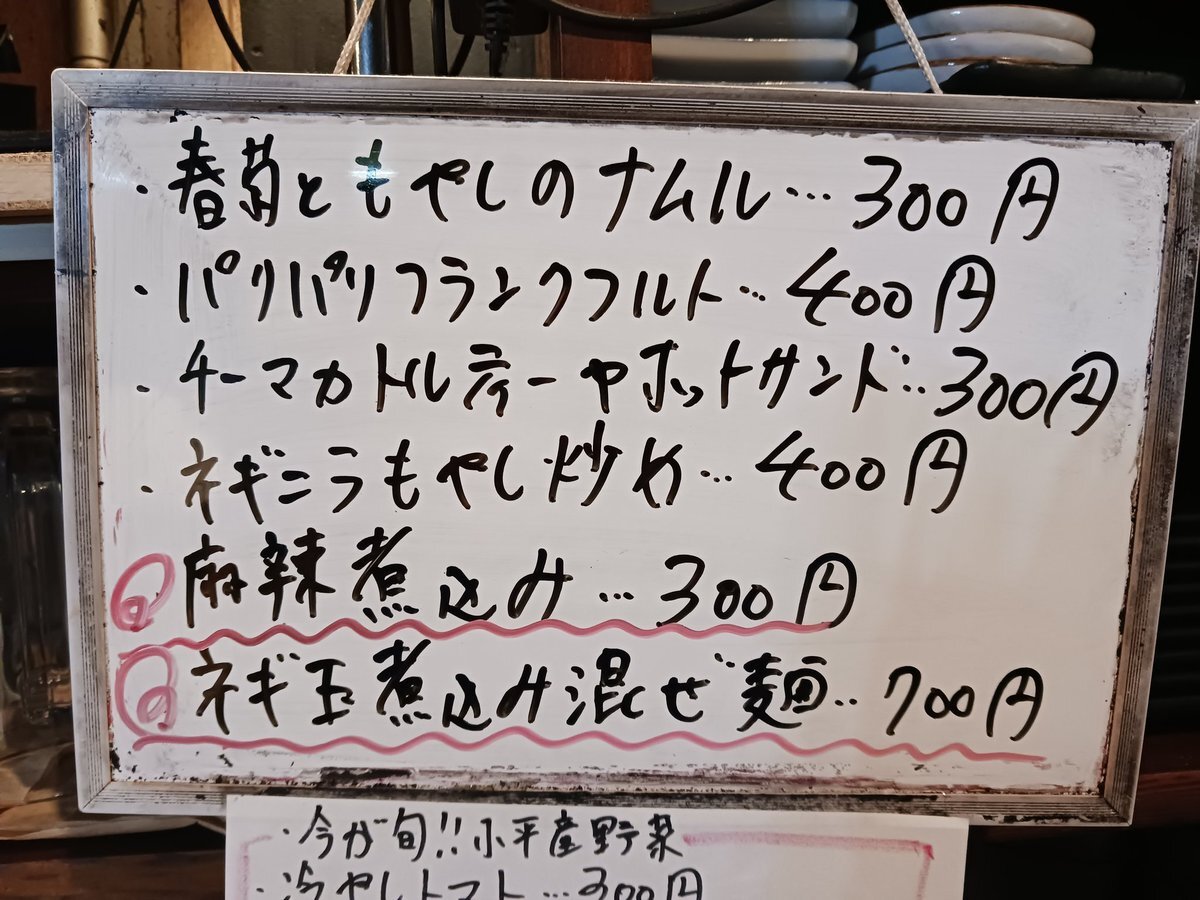 ・春菊ともやしのナムル…300円
・パリパリフランクフルト…400円
・チーマカトルティーヤホットサンド…300円
・ネギニラもやし炒め…400円
麻辣煮込み…300円
ネギ玉煮込み混ぜ麺‥700円
・今が旬!!小平産野菜
・冷やしトマト…300円